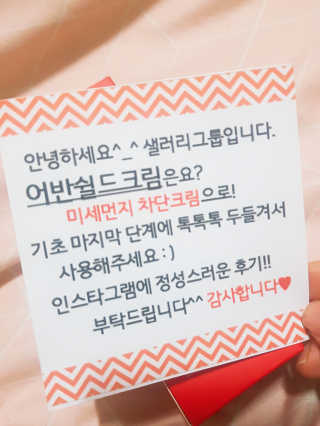 안녕하세요^_^ 샐러리그룹입니다.
어반쉴드크림은요?
미세먼지 차단크림으로!
기초 마지막 단계에 톡톡톡 두들겨서
사용해주세요 : )
인스타그램에 정성스러운 후기!!
부탁드립니다^^ 감사합니다♥